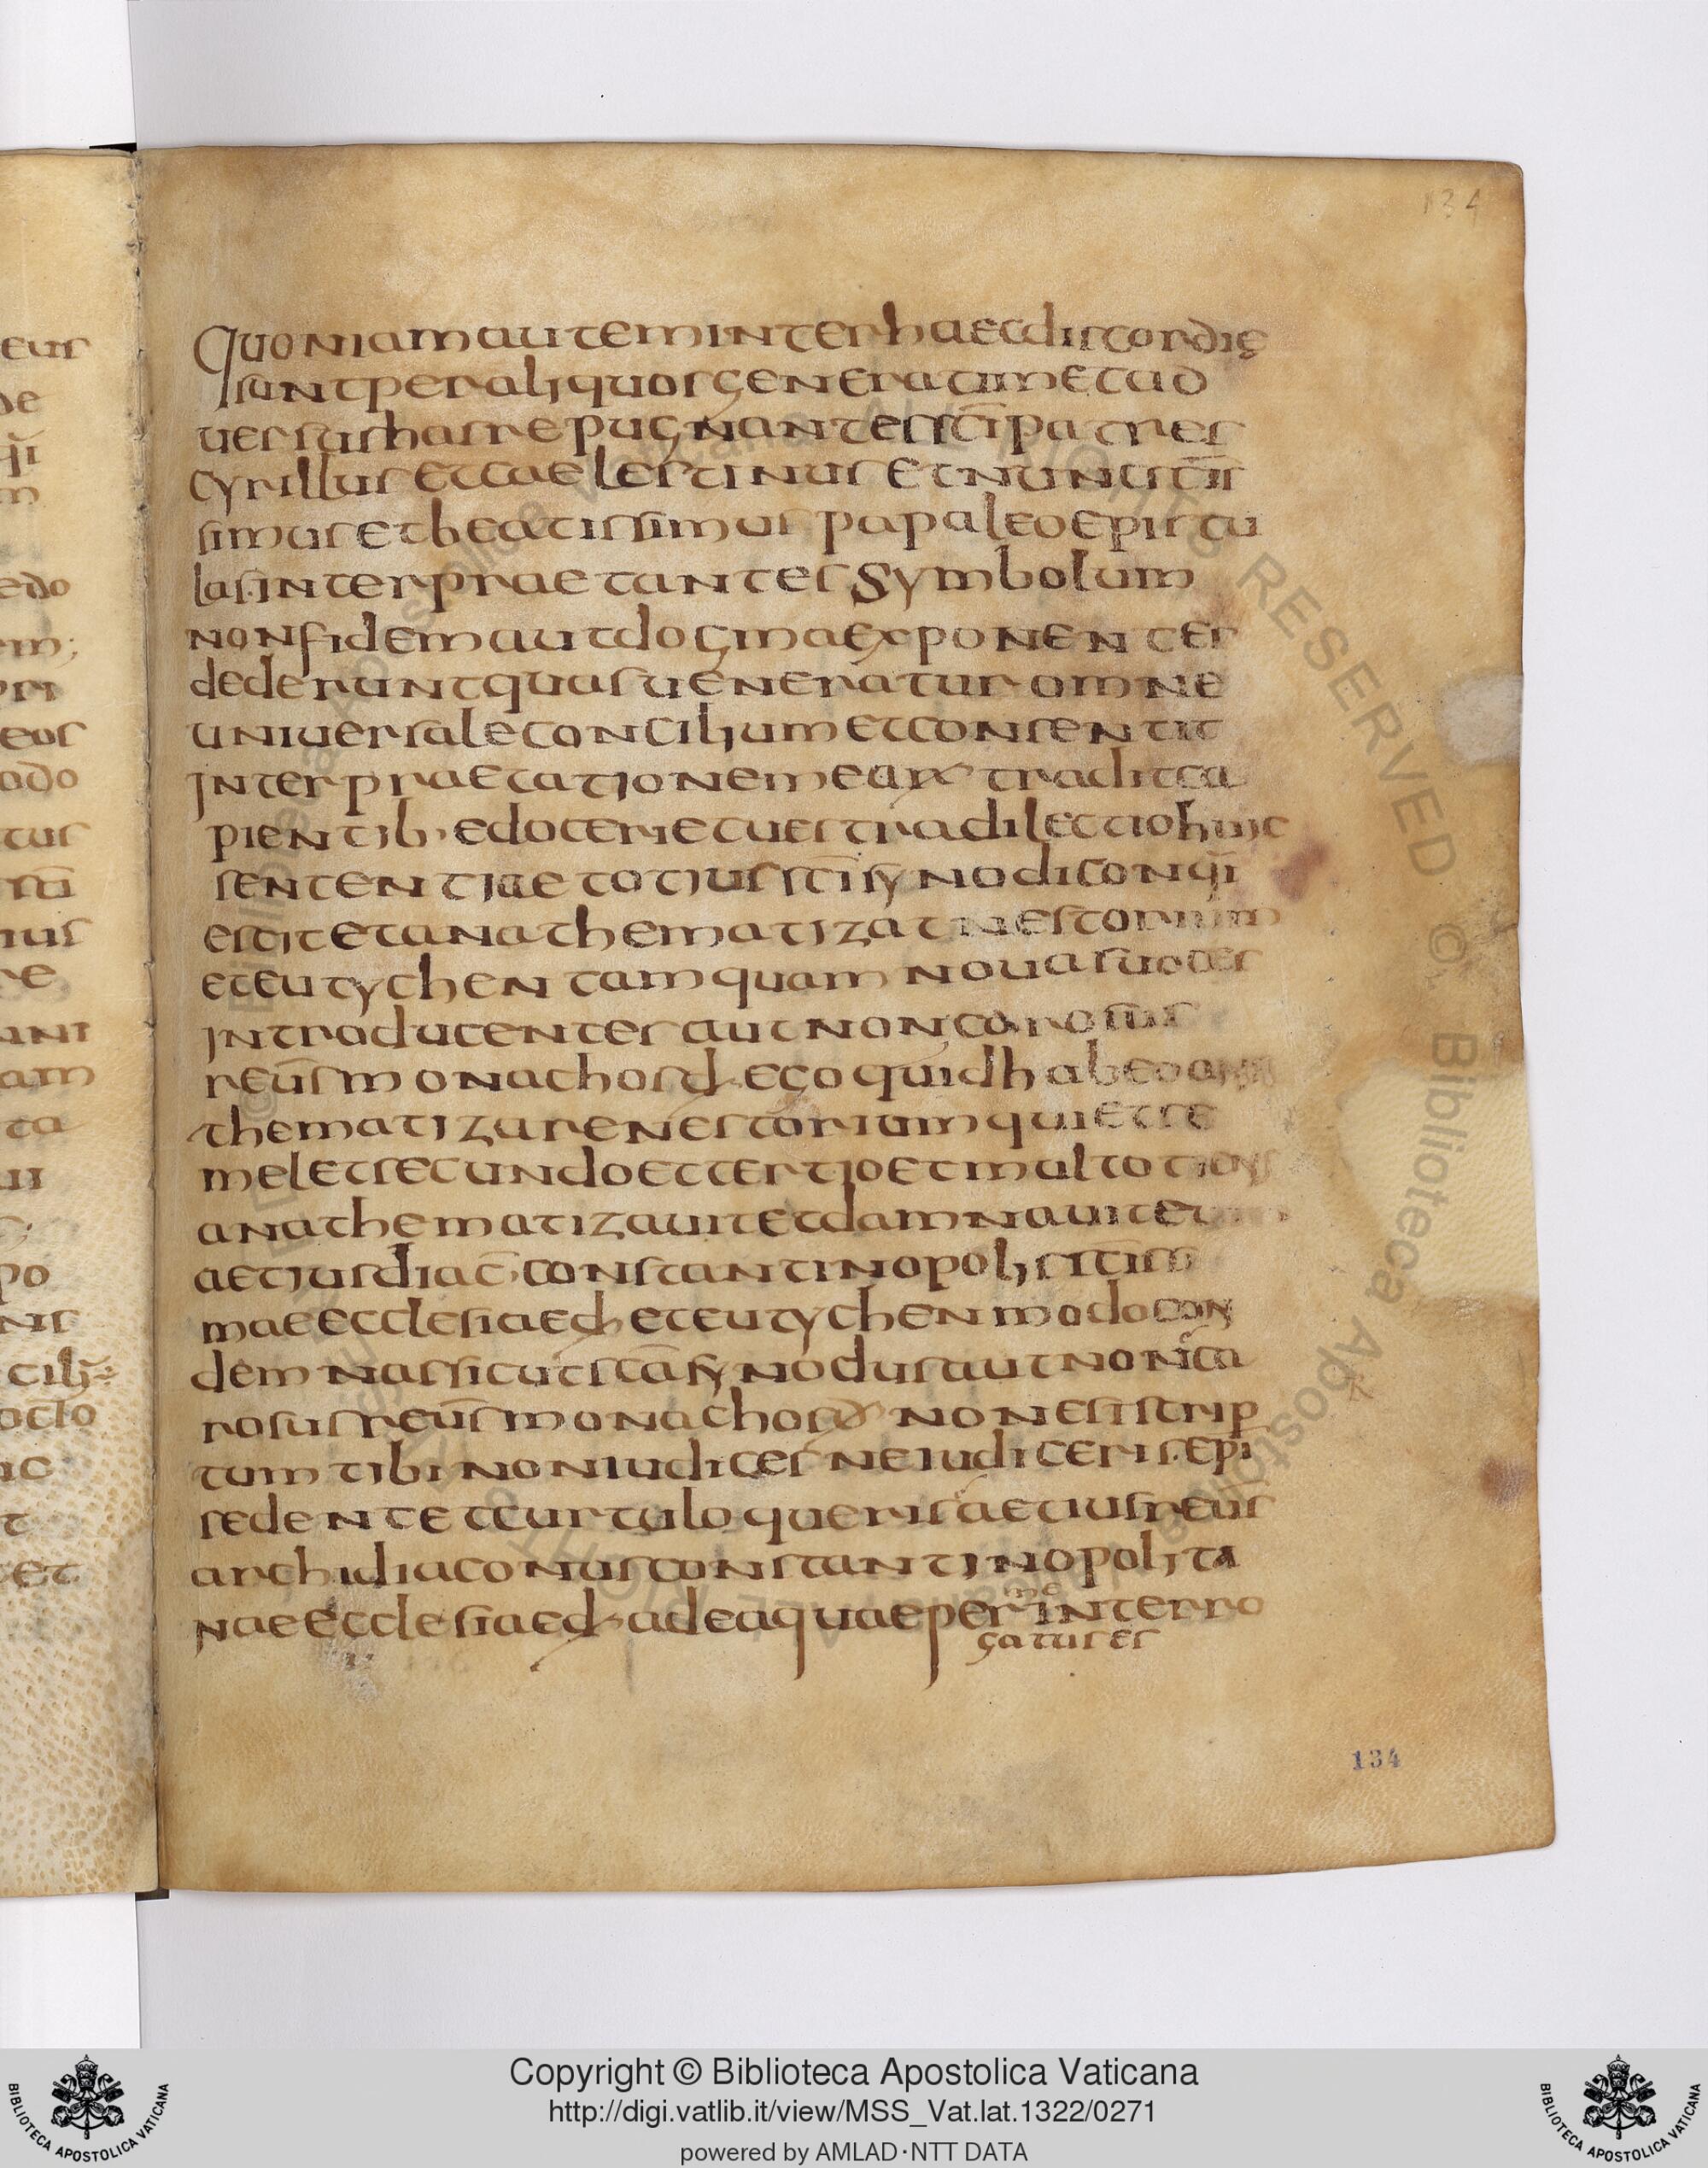 134
eur
de
qi
m
edo
em;
eos
odo
tur
nus
re
ta
po
nis
cili
octo
ic
t
et
quoniam autem inter haec discordię
sunt per aliquos generatim et ad
uersus has repugnantes sc̄i patres
cyrillus et caelestinus et nunc sc̄is
simus et beatissimus papa leo epistu
las. interpraetantes symbolum
non fidem aut dogma exponentes
dederunt quas ueneratur omne
uniuersale concilium et consentit
interpraetationem earū tradit ca
pientib· edoceri et uestra dilectio huic
sententiae totius sc̄i synodi con qi
est ita et anathematizat nestorium
et eutychen tamquam nouas uoces
introducentes aut non carosus
reūs monachos d· ego quid habeo ana
thematizare nestorium qui et se
mel et secundo et tertio et multotiens
anathematizauit et damnauit eum
aetius diac̄· constantinopolis sc̄iss
mae ecclesiae d· et eutychen modo con
demnas sicut sc̄a synodus aut non ca
rosus reūs monachos d· non est scrip
tum tibi non iudices ne iudiceris. epi
sedent et tu cur loqueris aetius reus
archidiaconus constantinopolita
nae ecclesiae d· ad ea quae per me interro
gatus es
134
Copyright © Biblioteca Apostolica Vaticana
http://digi.vatlib.it/view/MSS_Vat.lat.1322/0271
powered by AMLAD·NTT DATA
BIBLIOTECA APOSTOLICA VATICANA
BIBLIOTECA APOSTOLICA VATICANA